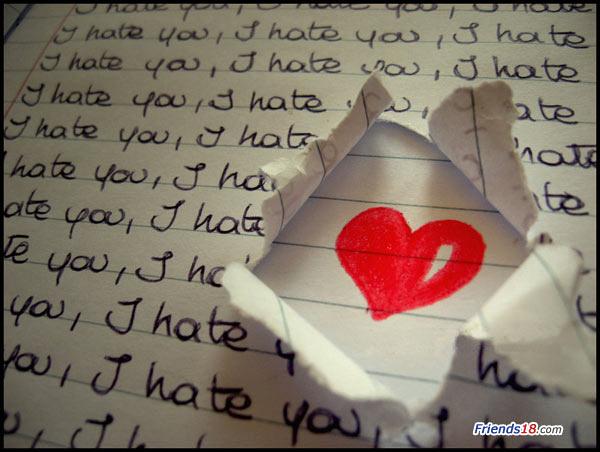 I hate you, I hate you, I hate
I hate you, I hate you, I hate
I hate you, I hate you, I hate
I hate you, I hate you, ate
I hate you, I hate hate
hate you, I ha ate
ate you, I hate
te you, I ha
you, I hate y
you, I hate you, I ha
Friends18.com